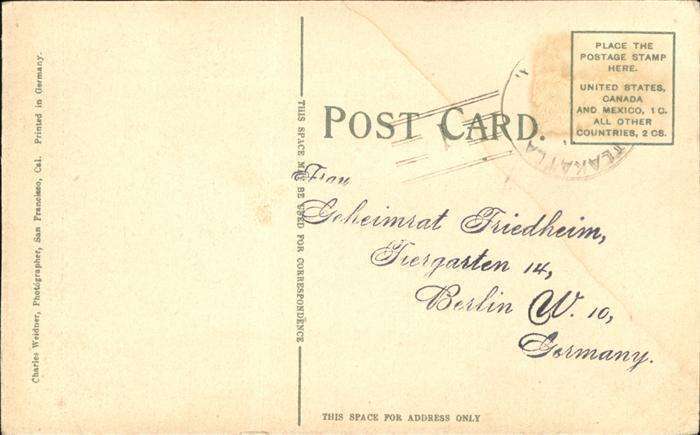 Charles Weidner, Photographer, San Francisco, Cal. Printed in Germany.
THIS SPACE MAY BE USED FOR CORRESPONDENCE
POST CARD.
PLACE THE
POSTAGE STAMP
HERE.
UNITED STATES,
CANADA
AND MEXICO, 1 C.
ALL OTHER
COUNTRIES, 2 CS.
Frau
Geheimrat Friedheim,
Tiergarten 14,
Berlin W. 10,
Germany.
THIS SPACE FOR ADDRESS ONLY